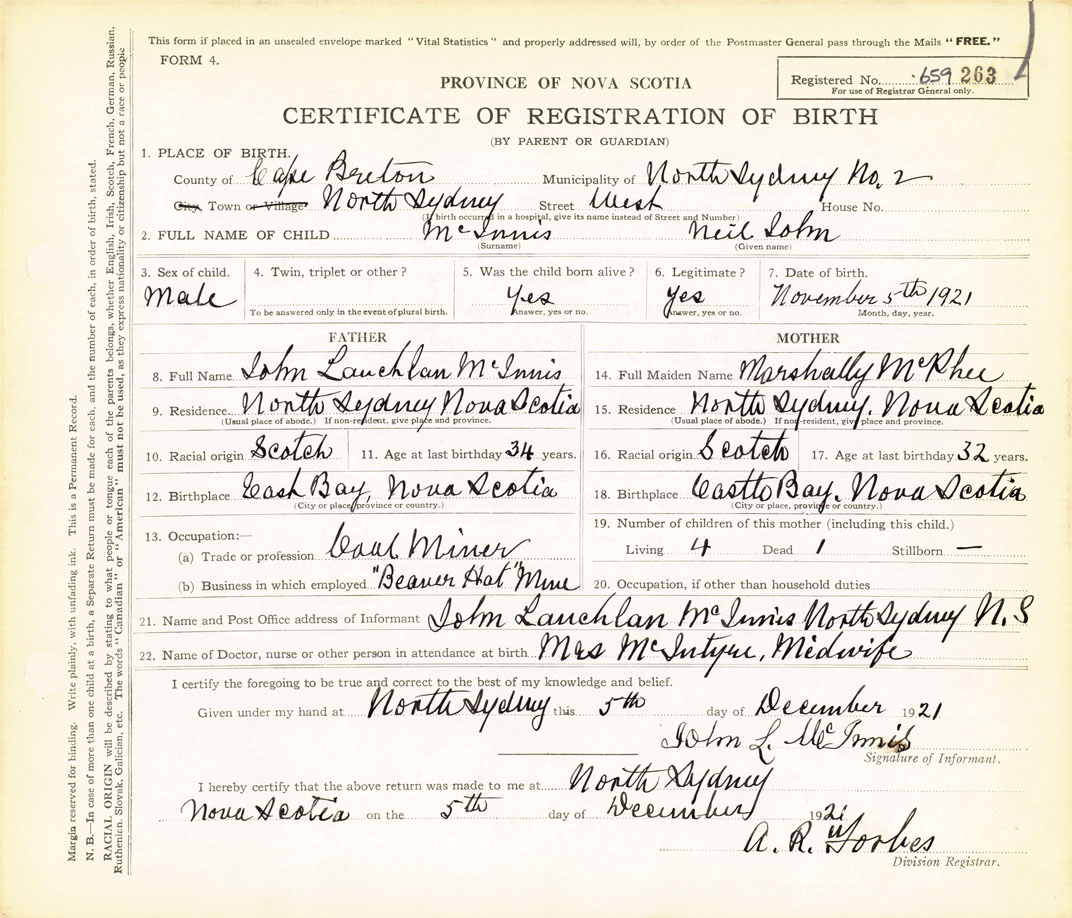 This form if placed in an unsealed envelope marked "Vital Statistics" and properly addressed will, by order of the Postmaster General pass through the Mails "FREE."
FORM 4.
Registered No. 659 263
For use of Registrar General only.
PROVINCE OF NOVA SCOTIA
CERTIFICATE OF REGISTRATION OF BIRTH
(BY PARENT OR GUARDIAN)
1. PLACE OF BIRTH.
County of Cape Breton Municipality of North Sydney No. 2
City, Town or Village North Sydney Street West House No.
(If birth occurred in a hospital, give its name instead of Street and Number)
2. FULL NAME OF CHILD McInnis Neil John
(Surname) (Given name)
3. Sex of child. 4. Twin, triplet or other? 5. Was the child born alive? 6. Legitimate? 7. Date of birth.
Male Yes Yes November 5th 1921
To be answered only in the event of plural birth. Answer, yes or no. Answer, yes or no. Month, day, year.
FATHER MOTHER
8. Full Name John Lauchlan McInnis 14. Full Maiden Name Marshally McPhee
9. Residence North Sydney Nova Scotia 15. Residence North Sydney. Nova Scotia
(Usual place of abode.) If non-resident, give place and province. (Usual place of abode.) If non-resident, give place and province.
10. Racial origin Scotch 11. Age at last birthday 34 years. 16. Racial origin Scotch 17. Age at last birthday 32 years.
12. Birthplace Bay, Nova Scotia 18. Birthplace Bay. Nova Scotia
(City or place, province or country.) (City or place, province or country.)
13. Occupation:— 19. Number of children of this mother (including this child.)
(a) Trade or profession Coal Miner Living 4 Dead 1 Stillborn —
(b) Business in which employed "Beaver Hat" Mine 20. Occupation, if other than household duties
21. Name and Post Office address of Informant John Lauchlan McInnis North Sydney N.S
22. Name of Doctor, nurse or other person in attendance at birth Mrs McIntyre, Midwife
I certify the foregoing to be true and correct to the best of my knowledge and belief.
Given under my hand at North Sydney this 5th day of December 1921
John L. McInnis
Signature of Informant.
I hereby certify that the above return was made to me at North Sydney
Nova Scotia on the 5th day of December 1921
A. R. Forbes
Division Registrar.
Margin reserved for binding. Write plainly, with unfading ink. This is a Permanent Record.
N. B.—In case of more than one child at a birth, a Separate Return must be made for each, and the number of each, in order of birth, stated.
RACIAL ORIGIN will be described by stating to what people or tongue each of the parents belongs, whether English, Irish, Scotch, French, German, Russian,
Ruthenian, Slovak, Galician, etc. The words "Canadian" or "American" must not be used, as they express nationality or citizenship but not a race or people